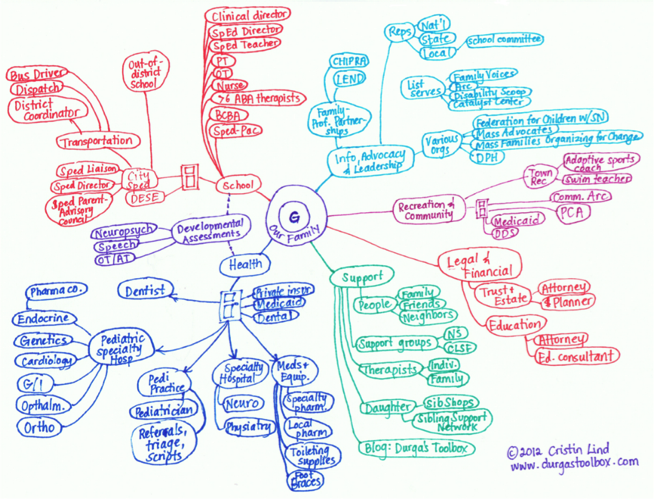 G
Our Family
School
Clinical director
SpEd Director
SpEd Teacher
PT
OT
Nurse
>6 ABA therapists
BCBA
Sped-Pac
Out-of-
district
School
City
Sped
DESE
Transportation
Bus Driver
Dispatch
District
Coordinator
Sped Liaison
Sped Director
Sped Parent-
Advisory
Council
Developmental
Assessments
Neuropsych
Speech
OT/AT
Health
Dentist
Private insur.
Medicaid
Dental
Pediatric
specialty
Hosp.
Pharma co.
Endocrine
Genetics
Cardiology
G/I
Opthalm.
Ortho
Pedi
Practice
Pediatrician
Referrals,
triage,
scripts
Specialty
Hospital
Neuro
Physiatry
Meds+
Equip.
Specialty
pharm.
Local
pharm
Toileting
supplies
Foot
Braces
Info, Advocacy
& Leadership
Family-
Prof. Partner-
ships
CHIPRA
LEND
Reps
Nat'l
State
Local
school committee
List
serves
Family Voices
Arc
Disability Scoop
Catalyst Center
Various
Orgs
Federation for Children w/SN
Mass Advocates
Mass Families Organizing for Change
DPH
Recreation &
Community
Town
Rec
Adaptive sports
coach
Swim teacher
Comm. Arc
PCA
Medicaid
DDS
Legal &
Financial
Trust +
Estate
Attorney
$ Planner
Education
Attorney
Ed. consultant
Support
People
Family
Friends
Neighbors
Support groups
NS
CLSE
Therapists
Indiv.
Family
Daughter
SibShops
Sibling Support
Network
Blog: Durga's Toolbox
©2012 Cristin Lind
www.durgastoolbox.com